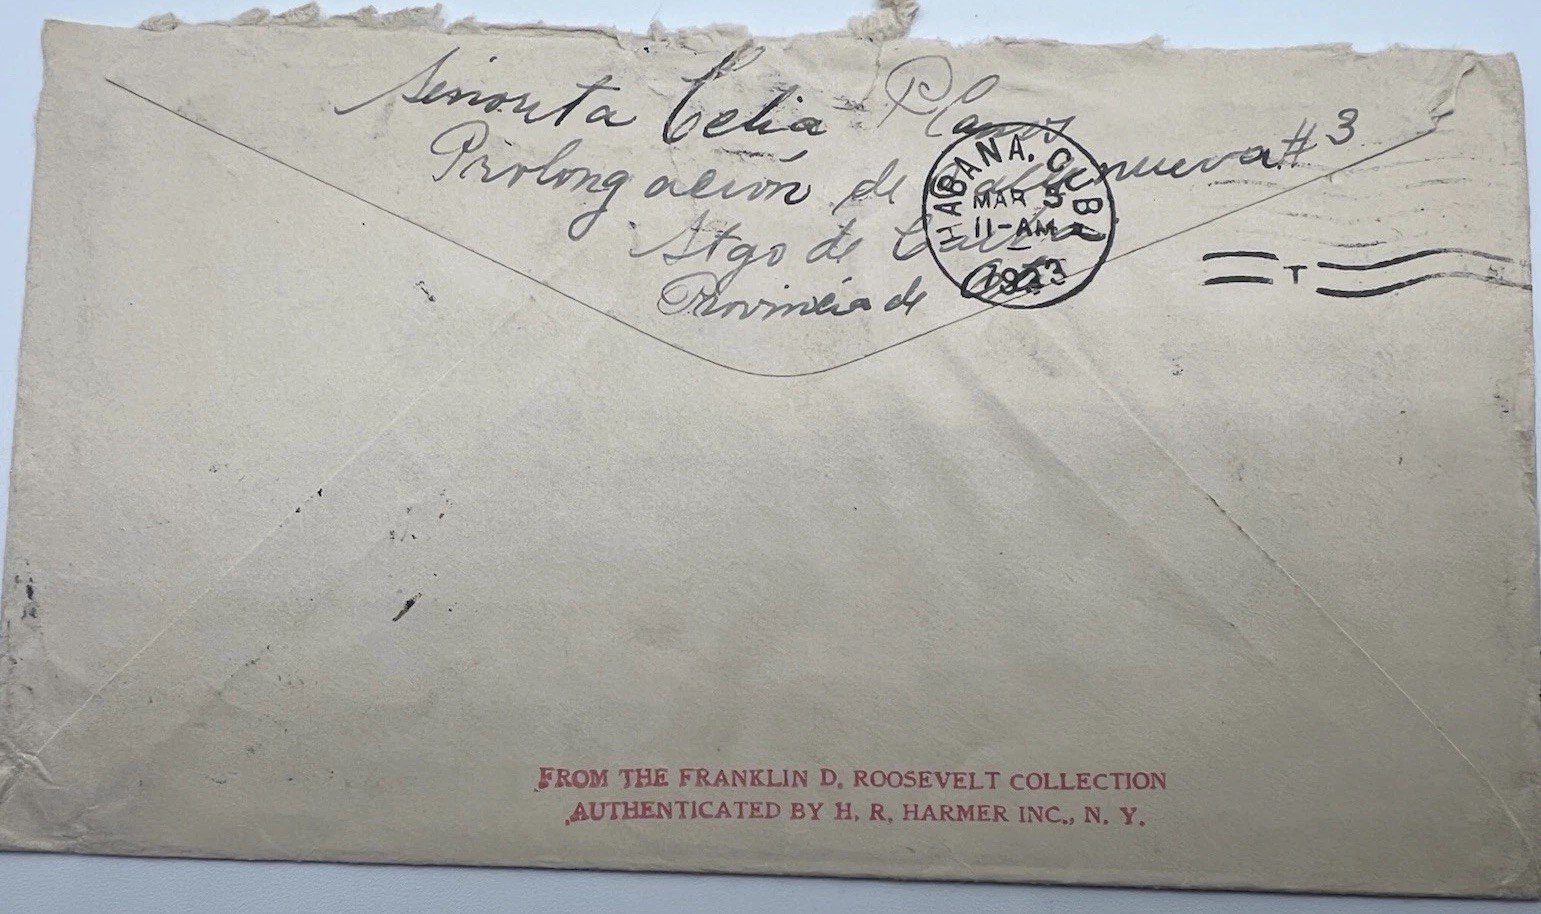 Señorita Celia Planos
Prolongación de Callenueva #3
Stgo de Cuba
Provincia de Ote
HABANA, CUBA
MAR 5
11-AM
1933
T
FROM THE FRANKLIN D. ROOSEVELT COLLECTION
AUTHENTICATED BY H. R. HARMER INC., N. Y.